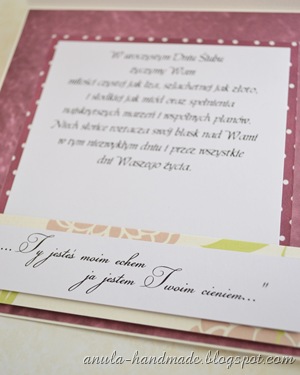 W uroczystym Dniu Ślubu
życzymy Wam
miłości czystej jak łza, szlachetnej jak złoto,
i słodkiej jak miód oraz spełnienia
najskrytszych marzeń i wspólnych planów.
Niech słońce roztacza swój blask nad Wami
w tym niezwykłym dniu i przez wszystkie
dni Waszego życia.
...Ty jesteś moim echem
ja jestem Twoim cieniem..."
anula-handmade.blogspot.com